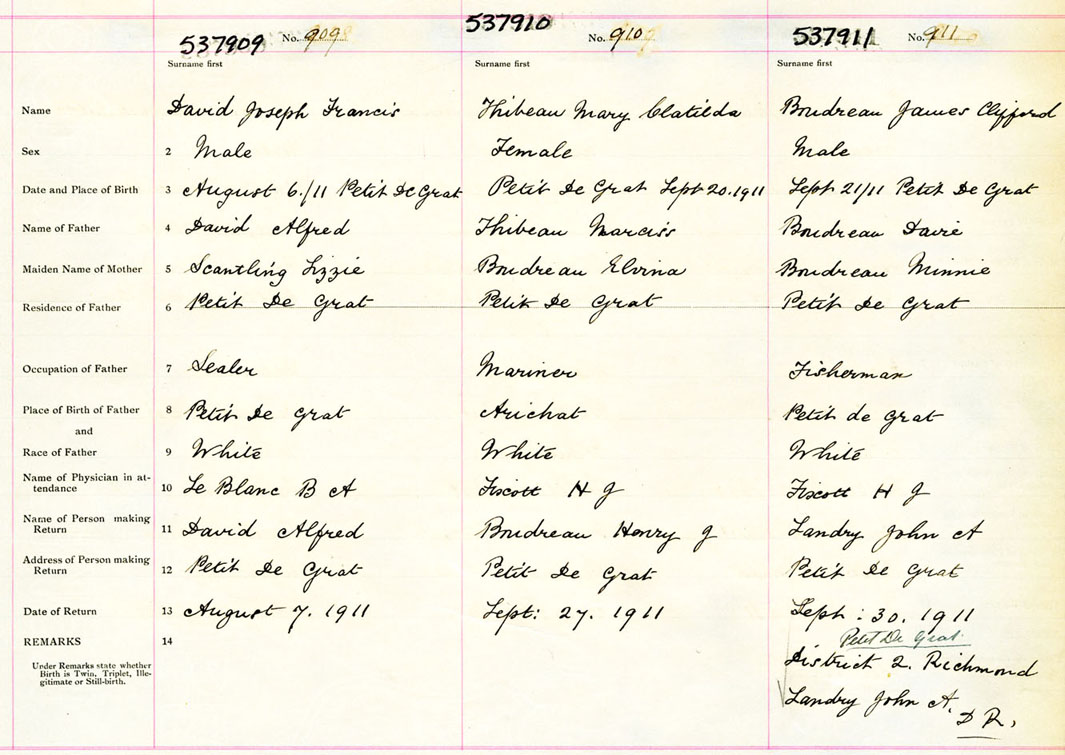 537909 No. 909 537910 No. 910 537911 No. 911
Surname first Surname first Surname first
Name David Joseph Francis Thibeau Mary Clatilda Boudreau James Clifford
Sex 2 Male Female Male
Date and Place of Birth 3 August 6./11 Petit De Grat Petit De Grat Sept 20.1911 Sept 21/11 Petit De Grat
Name of Father 4 David Alfred Thibeau Narciss Boudreau Davie
Maiden Name of Mother 5 Scantling Lizzie Boudreau Elvina Boudreau Minnie
Residence of Father 6 Petit De Grat Petit De Grat Petit De Grat
Occupation of Father 7 Sealer Mariner Fisherman
Place of Birth of Father 8 Petit De Grat Arichat Petit de Grat
and
Race of Father 9 White White White
Name of Physician in at-
tendance 10 Le Blanc B A Fiscott H J Fiscott H J
Name of Person making
Return 11 David Alfred Boudreau Henry J Landry John A
Address of Person making
Return 12 Petit De Grat Petit De Grat Petit De Grat
Date of Return 13 August 7. 1911 Sept: 27. 1911 Sept: 30. 1911
REMARKS 14 Petit De Grat
Under Remarks state whether
Birth is Twin, Triplet, Ille-
gitimate or Still-birth.
District 2. Richmond
Landry John A.
D R.